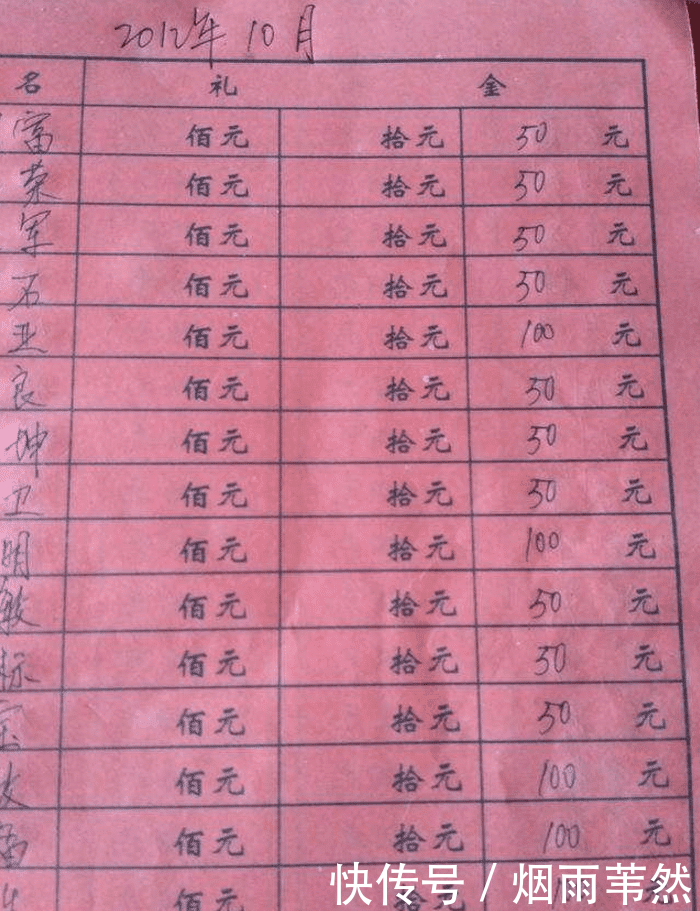 2012年10月
名 礼 金
富 佰元 拾元 50 元
荣 佰元 拾元 50 元
军 佰元 拾元 50 元
石 佰元 拾元 50 元
亚 佰元 拾元 100 元
良 佰元 拾元 50 元
坤 佰元 拾元 50 元
卫 佰元 拾元 50 元
明 佰元 拾元 100 元
敏 佰元 拾元 50 元
标 佰元 拾元 50 元
宝 佰元 拾元 50 元
友 佰元 拾元 100 元
佰元 拾元 100 元
佰元 拾元
快传号 / 烟雨苇然